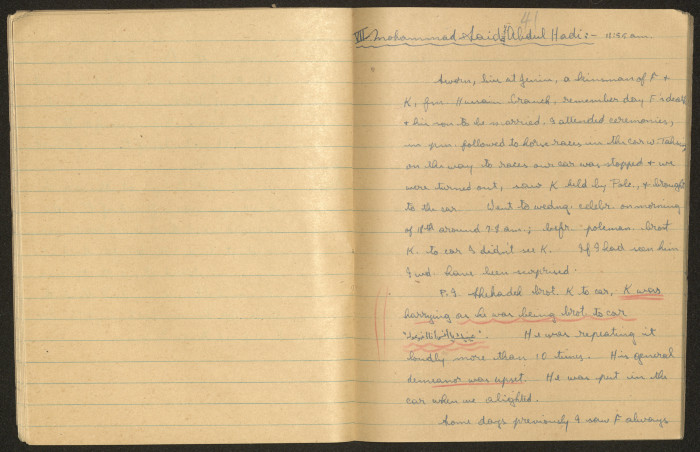 41
VII. Mohammad Said Abdul Hadi :- 11:55 a.m.
Sworn, live at Jenin, a kinsman of F +
K, fm Hussain branch. remember day F's death
+ his son to be married. I attended ceremonies,
in p.m. followed to horse races in the car w. Taher,
on the way to races our car was stopped + we
were turned out, saw K held by Pole., + brought
to the car. Went to wedng. celebr. on morning
of 18th around 7-8 a.m.; befr. poleman brot
K. to car I didn't see K. If I had seen him
I wd. have been surprised.
P. I. Shehadeh brot K to car, K was
harrying as he was being brot to car
He was repeating it
loudly more than 10 times. His general
demeanor was upset. He was put in the
car when we alighted.
Some days previously I saw F always